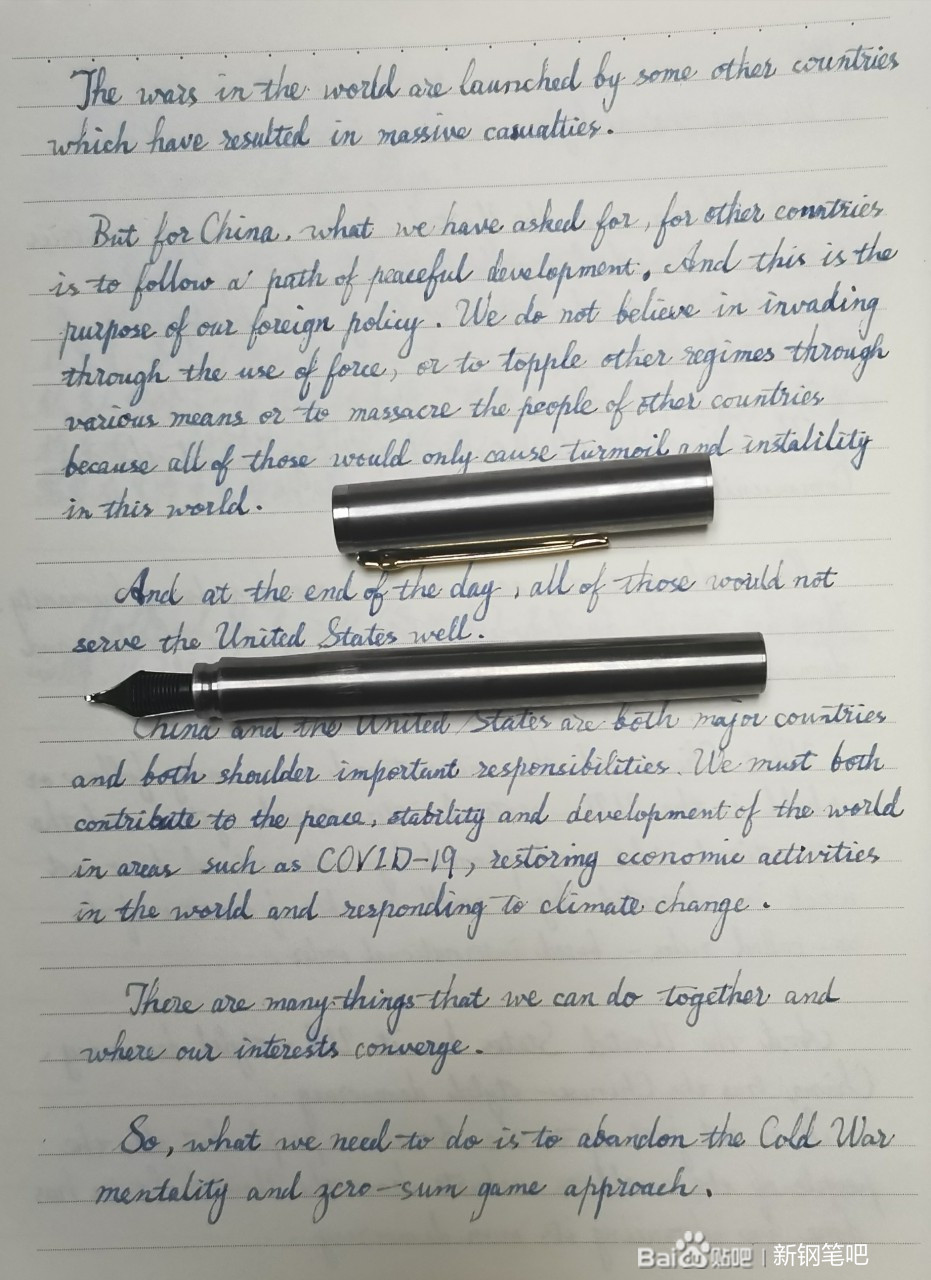 The wars in the world are launched by some other countries
which have resulted in massive casualties.
But for China, what we have asked for, for other countries
is to follow a path of peaceful development. And this is the
purpose of our foreign policy. We do not believe in invading
through the use of force, or to topple other regimes through
various means or to massacre the people of other countries
because all of those would only cause turmoil and instalility
in this world.
And at the end of the day, all of those would not
serve the United States well.
China and the United States are both major countries
and both shoulder important responsibilities. We must both
contribute to the peace, stability and development of the world
in areas such as COVID-19, restoring economic activities
in the world and responding to climate change.
There are many things that we can do together and
where our interests converge.
So, what we need to do is to abandon the Cold War
mentality and zero-sum game approach.
Baidu贴吧 | 新钢笔吧